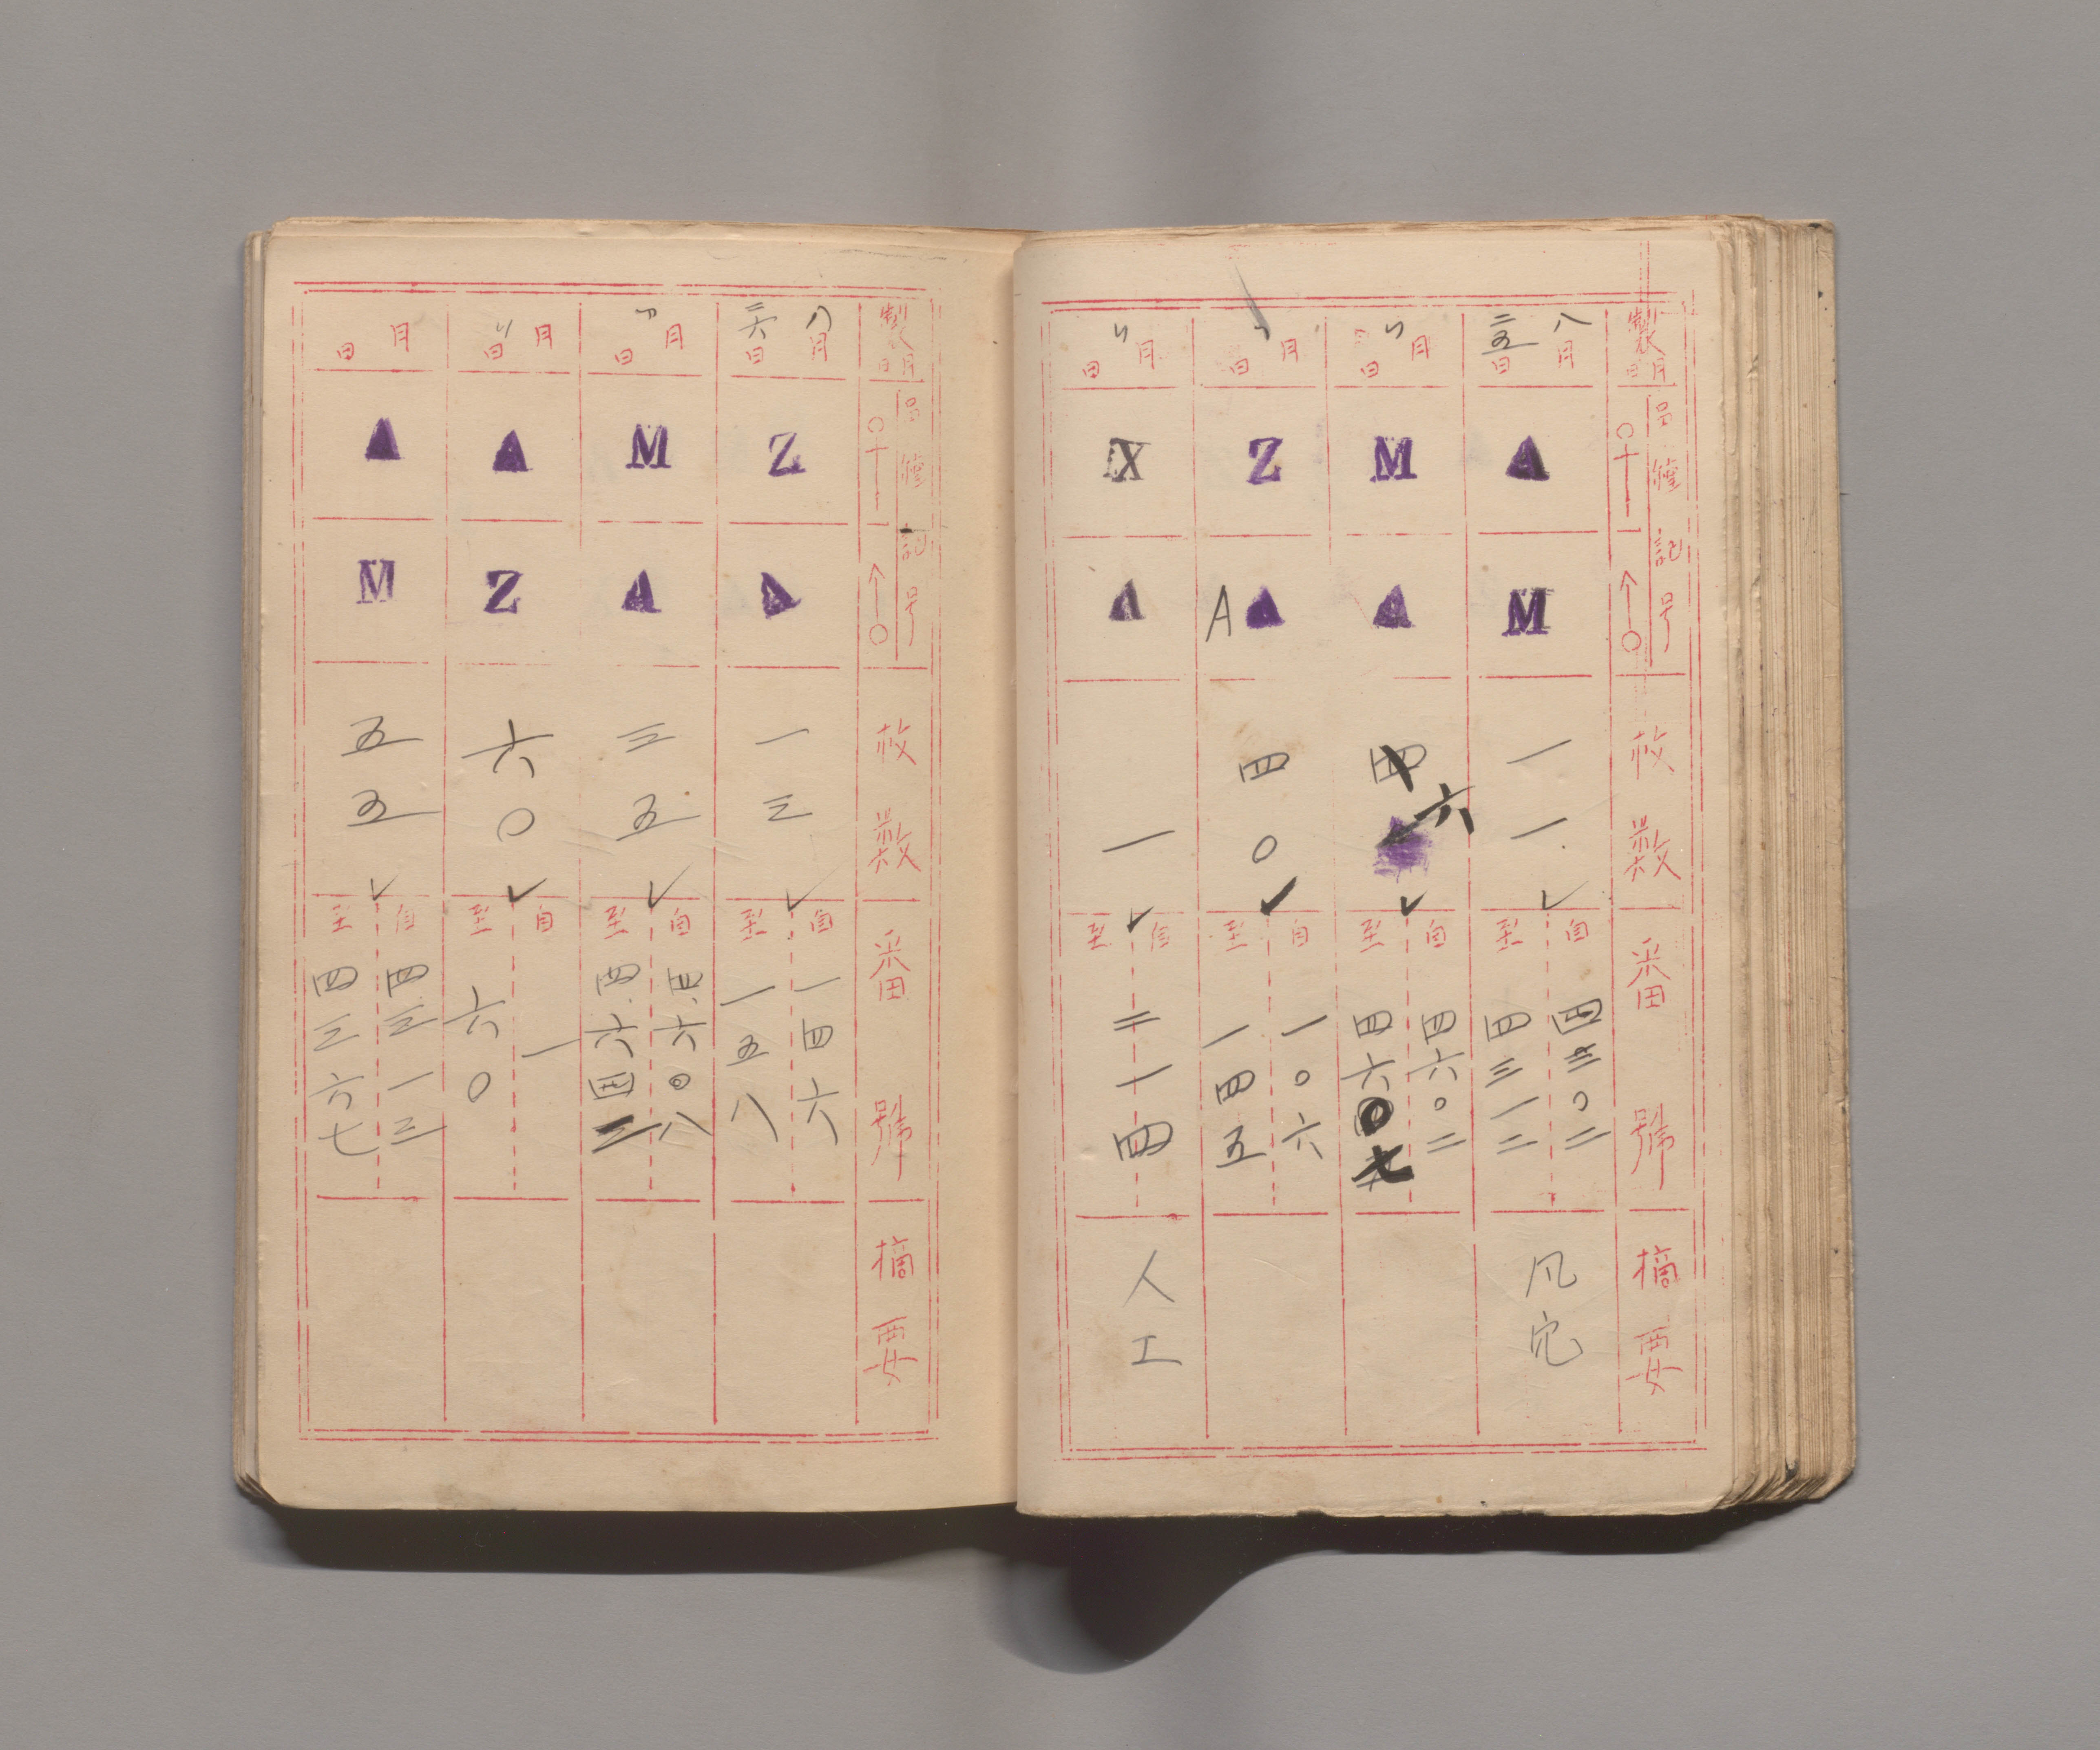 製月日
吊鐘記号
枚数
番號
摘要
八月二五日
A
M
一一
自 四三〇二
至 四三一二
凡宅
〃月日
M
A
六
自 四六〇二
至 四六〇七
〃月日
Z
A A
四〇
自 一〇六
至 一四五
〃月日
X
A
一
自 至
二一四
人工
製月日
吊鐘記号
枚数
番號
摘要
八月二六日
Z
A
一三
自 一四六
至 一五八
〃月日
M
A
三五
自 四六〇八
至 四六四二
〃月日
A
Z
六〇
自 一
至 六〇
月日
A
M
五五
自 四三一三
至 四三六七